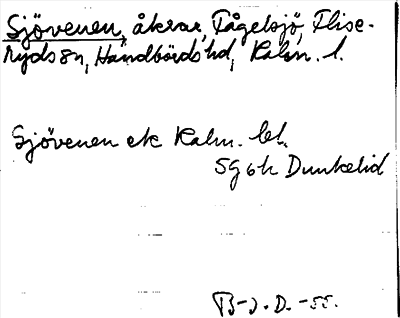 Sjövenen, åkrar, Fågelsjö, Flise-
ryds sn, Handbörds hd, Kalm. l.
Sjövenen ek Kalm. bl.
5G6h Dunkelid
B-J. D. -55.